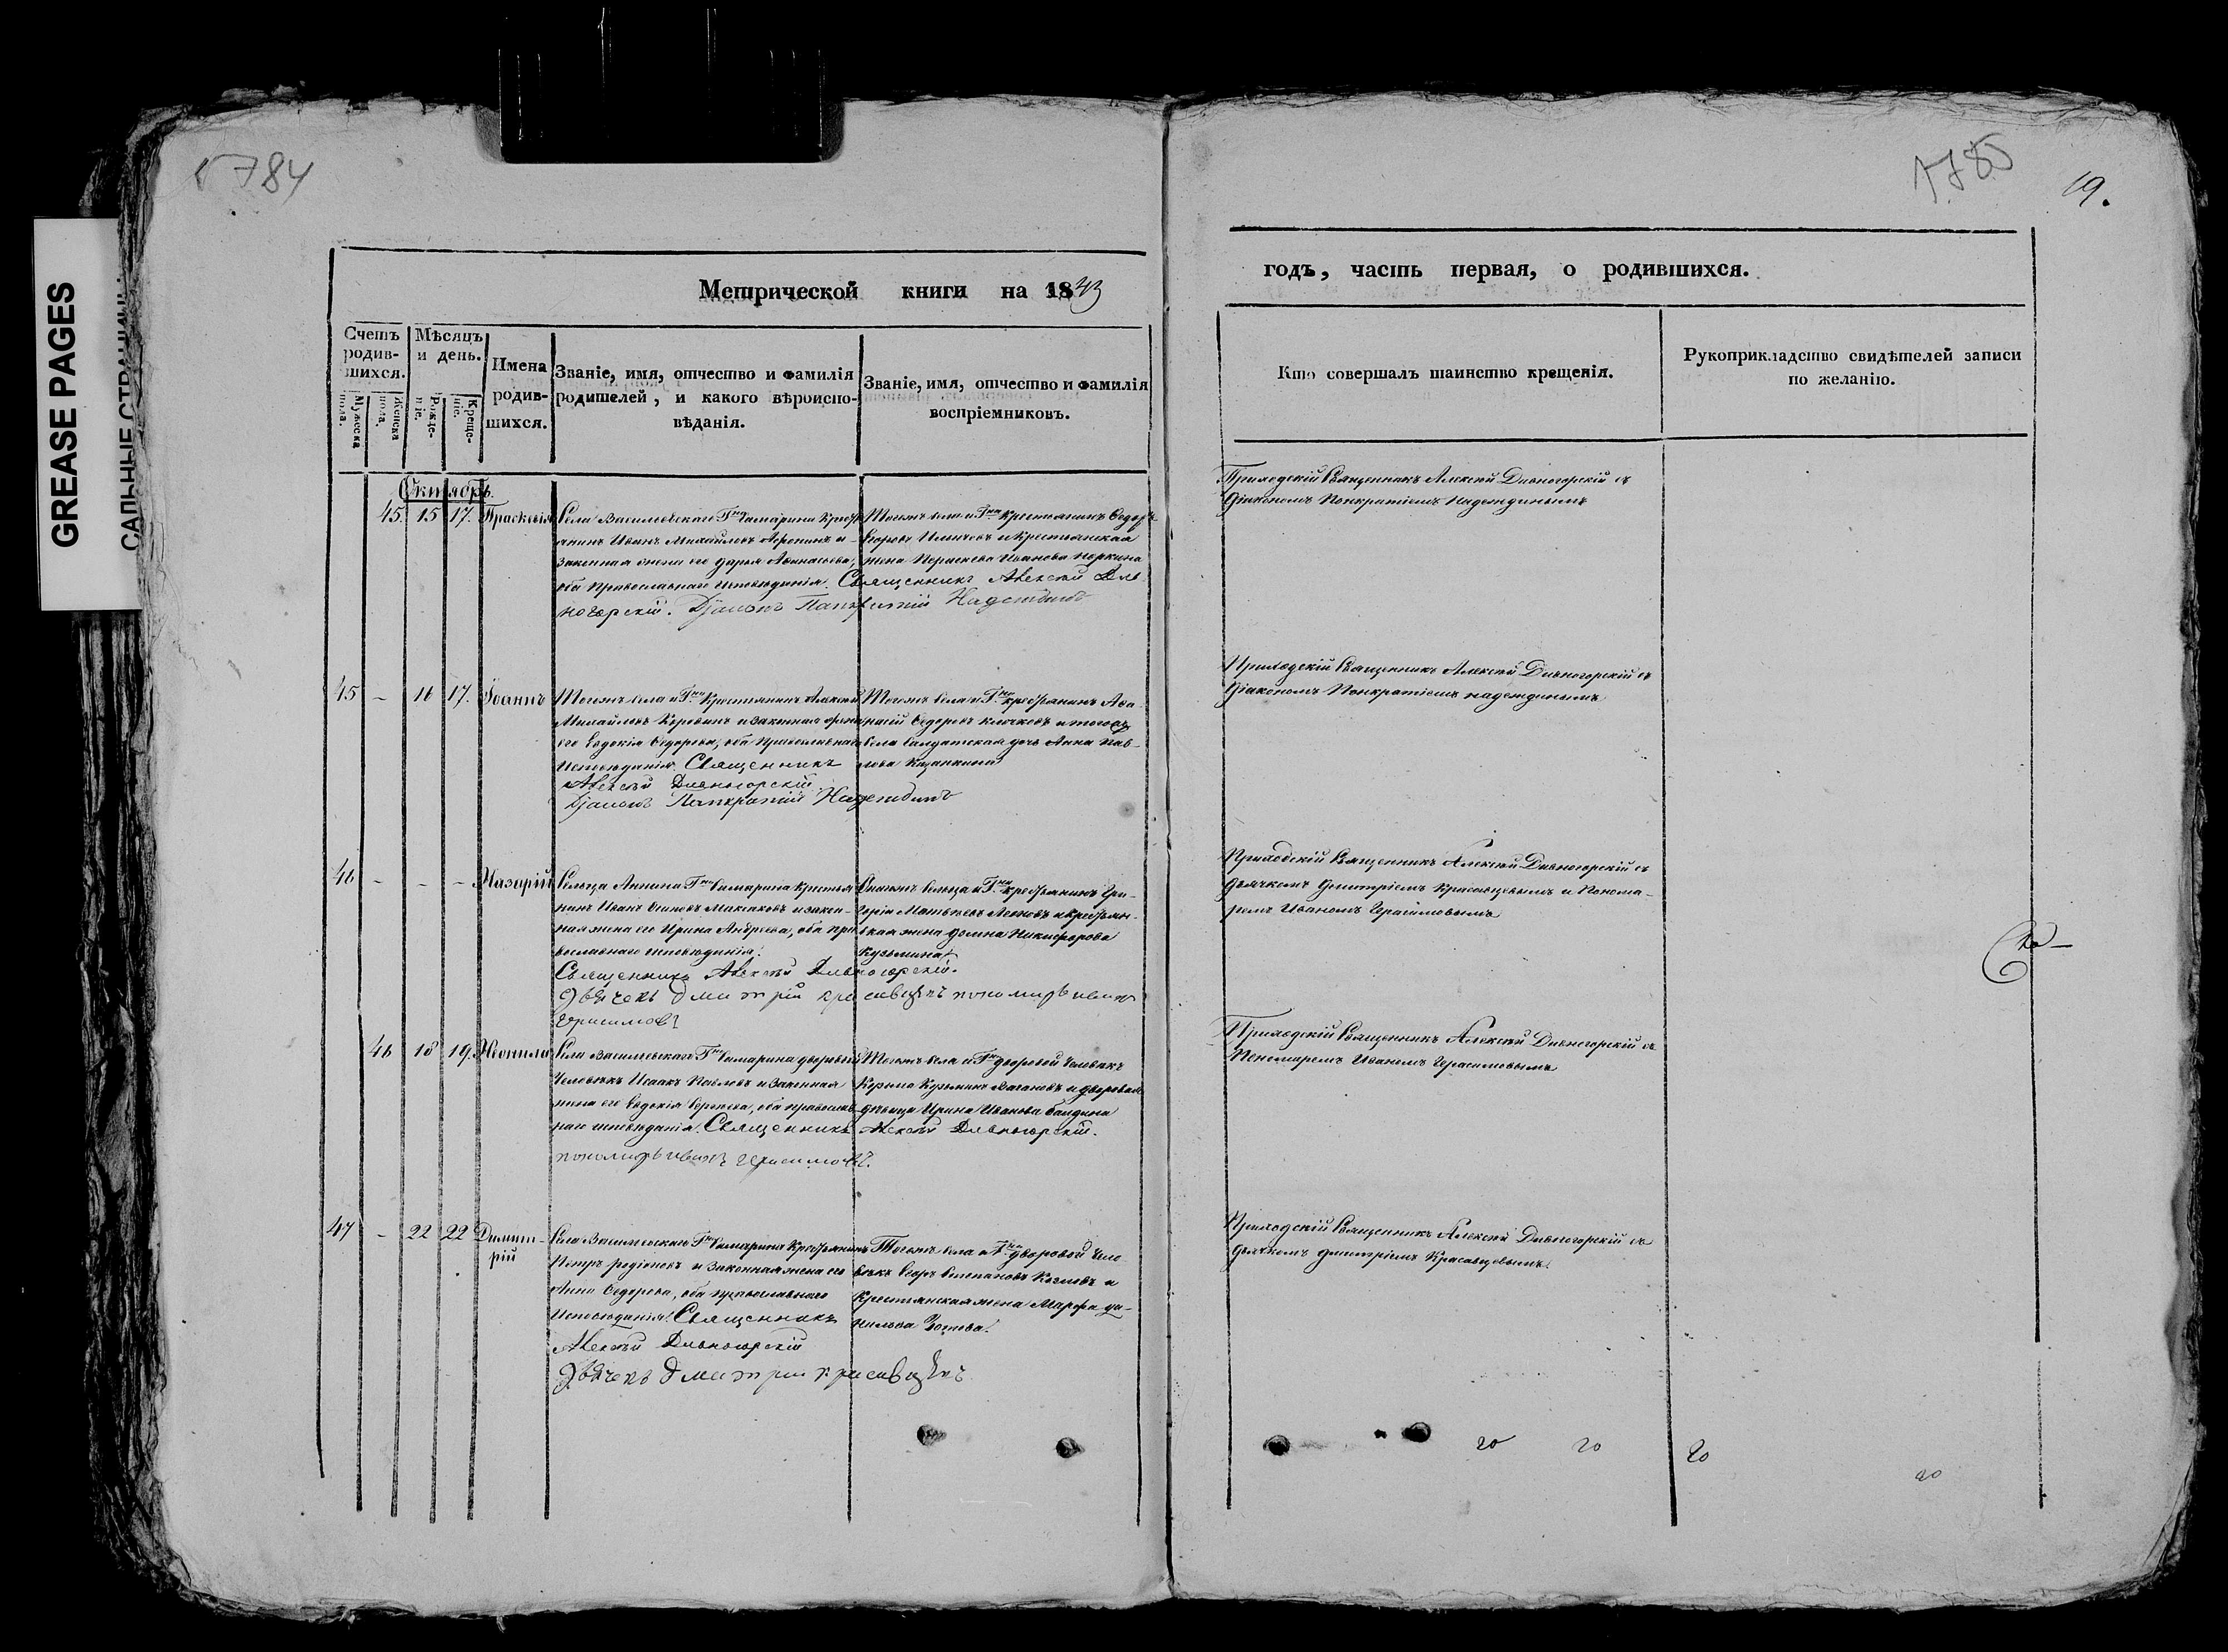 GREASE PAGES
САЛЬНЫЕ СТРАНИЦЫ
784
785
19.
Метрической книги на 1843
годъ, часть первая, о родившихся.
Счетъ родившихся.
Мужеска пола.
Женска пола.
Мѣсяцъ и день.
Рожденіе.
Крещеніе.
Имена родившихся.
Званіе, имя, отчество и фамилія родителей, и какого вѣроисповѣданія.
Званіе, имя, отчество и фамилія воспріемниковъ.
Кто совершалъ таинство крещенія.
Рукоприкладство свидѣтелей записи по желанію.
Октябрь.
45. 15 17. Праскевія
Села Васильевскаго Гна Самарина Кресть
янинъ Иванъ Михайловъ и
законная жена его Дарья Афанасьева,
оба Православнаго исповѣданія. Священникъ Алексѣй Див
ногорскій. Діаконъ Панкратій Надеждинъ
Тогожъ села и Гна крестьянинъ Ѳедоръ
Егоровъ и крестьянская
жена Иванова
Приходскій Священникъ Алексѣй Дивногорскій съ
Діакономъ Панкратіемъ Надеждинымъ
45 - 16 17. Іоаннъ
Тогожъ села и Гна Крестьянинъ Алексѣй
Михайловъ и законная жена
его Евдокія Ѳедорова, оба Православнаго
исповѣданія. Священникъ
Алексѣй Дивногорскій
Діаконъ Панкратій Надеждинъ
Тогожъ села и Гна крестьянинъ Аѳа
насій Ѳедоровъ Клочковъ и тогожъ
села солдатская дочь Анна Пав-
лова
Приходскій Священникъ Алексѣй Дивногорскій съ
Діакономъ Панкратіемъ Надеждинымъ
46 - - - Назарій
Сельца Аннина Гна Самарина крестья
нинъ Иванъ Осиповъ Максаковъ и закон-
ная жена его Ирина Андреева, оба пра
вославнаго исповѣданія.
Священникъ Алексѣй Дивногорскій.
Дьячекъ Дмитрій Красавцевъ пономарь Иванъ
Герасимовъ
Онагожъ сельца и Гна крестьянинъ Гри-
горій Матвѣевъ Леоновъ и крестьян-
ская жена Домна Никифорова
Кузьмина
Приходскій Священникъ Алексѣй Дивногорскій съ
Дьячкомъ Дмитріемъ Красавцевымъ и Понома-
ремъ Иваномъ Герасимовымъ
46 18 19. Неонила
Села Васильевскаго Гна Самарина дворовый
человѣкъ Исаакъ Павловъ и законная
жена его Евдокія Сергѣева, оба православ
наго исповѣданія. Священникъ Алексѣй Дивногорскій.
пономарь Иванъ Герасимовъ.
Тогожъ села и Гна дворовой человѣкъ
Козьма Кузьминъ и дворовая
дѣвица Ирина Иванова
Приходскій Священникъ Алексѣй Дивногорскій съ
Пономаремъ Иваномъ Герасимовымъ
47 - 22 22 Димит-
рій
Села Васильевскаго Гна Самарина Крестьянинъ
Петръ Родіоновъ и законная жена его
Анна Ѳедорова, оба православнаго
Исповѣданія. Священникъ
Алексѣй Дивногорскій
Дьячекъ Дмитрій Красавцевъ
Тогожъ села и Гна дворовой чело
вѣкъ Егоръ Степановъ Козловъ и
Крестьянская жена Марфа Да-
нилова Зотова.
Приходскій Священникъ Алексѣй Дивногорскій съ
Дьячкомъ Дмитріемъ Красавцевымъ.